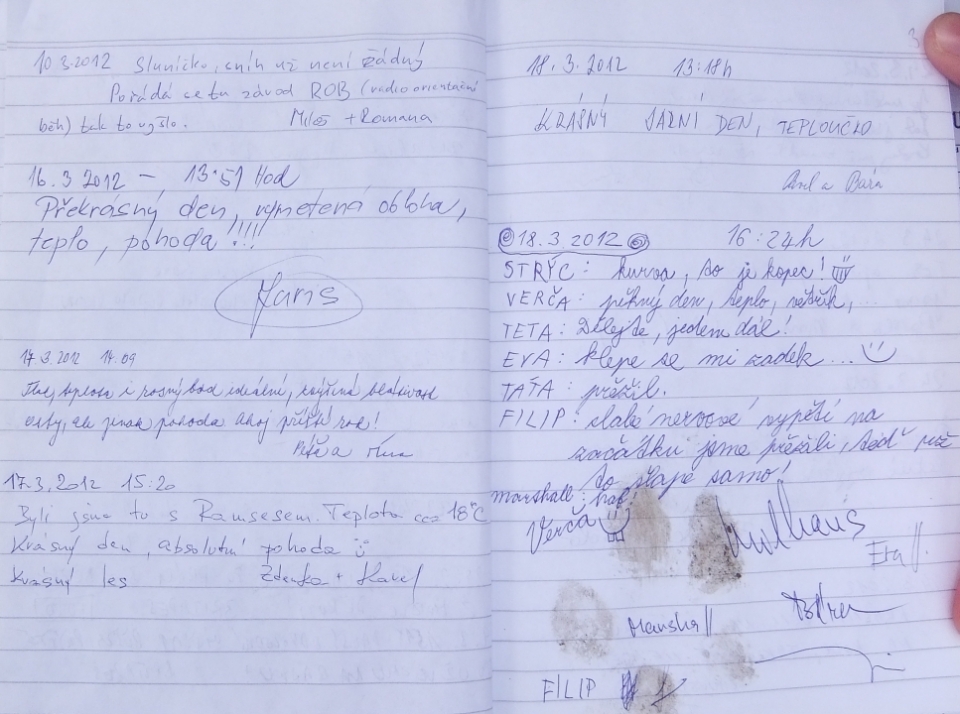 10.3.2012 Sluníčko, sníh už není žádný
Pořádá se tu závod ROB (radio orientační
běh) tak to vyšlo. Miloš + Romana
16.3 2012 – 13:51 Hod
Překrásný den, vymetená obloha,
teplo, pohoda!!!!
17.3.2012 14.09
i rosný bod ideální,
cesty, ale jinak pohoda ahoj příští rok!
17.3.2012 15:20
Byli jsme tu s Ramsesem. Teplota cca 18°C
Krásný den, absolutní pohoda
Krásný les Zdenka + Karel
3
18.3.2012 13:18h
KRÁSNÝ JARNÍ DEN, TEPLOUČKO
a Bára
18.3.2012 16:24h
STRÝC: kurva, to je kopec!
VERČA: pěkný den, teplo, větřík,
TETA: Dělejte, jedem dál!
EVA: klepe se mi zadek...
TAŤA: přežil.
FILIP: slabé nervové vypětí na
začátku jsme přežili, teď už
to šlape samo!
marshall: haf!
Verča
Eva
Marshall
FILIP